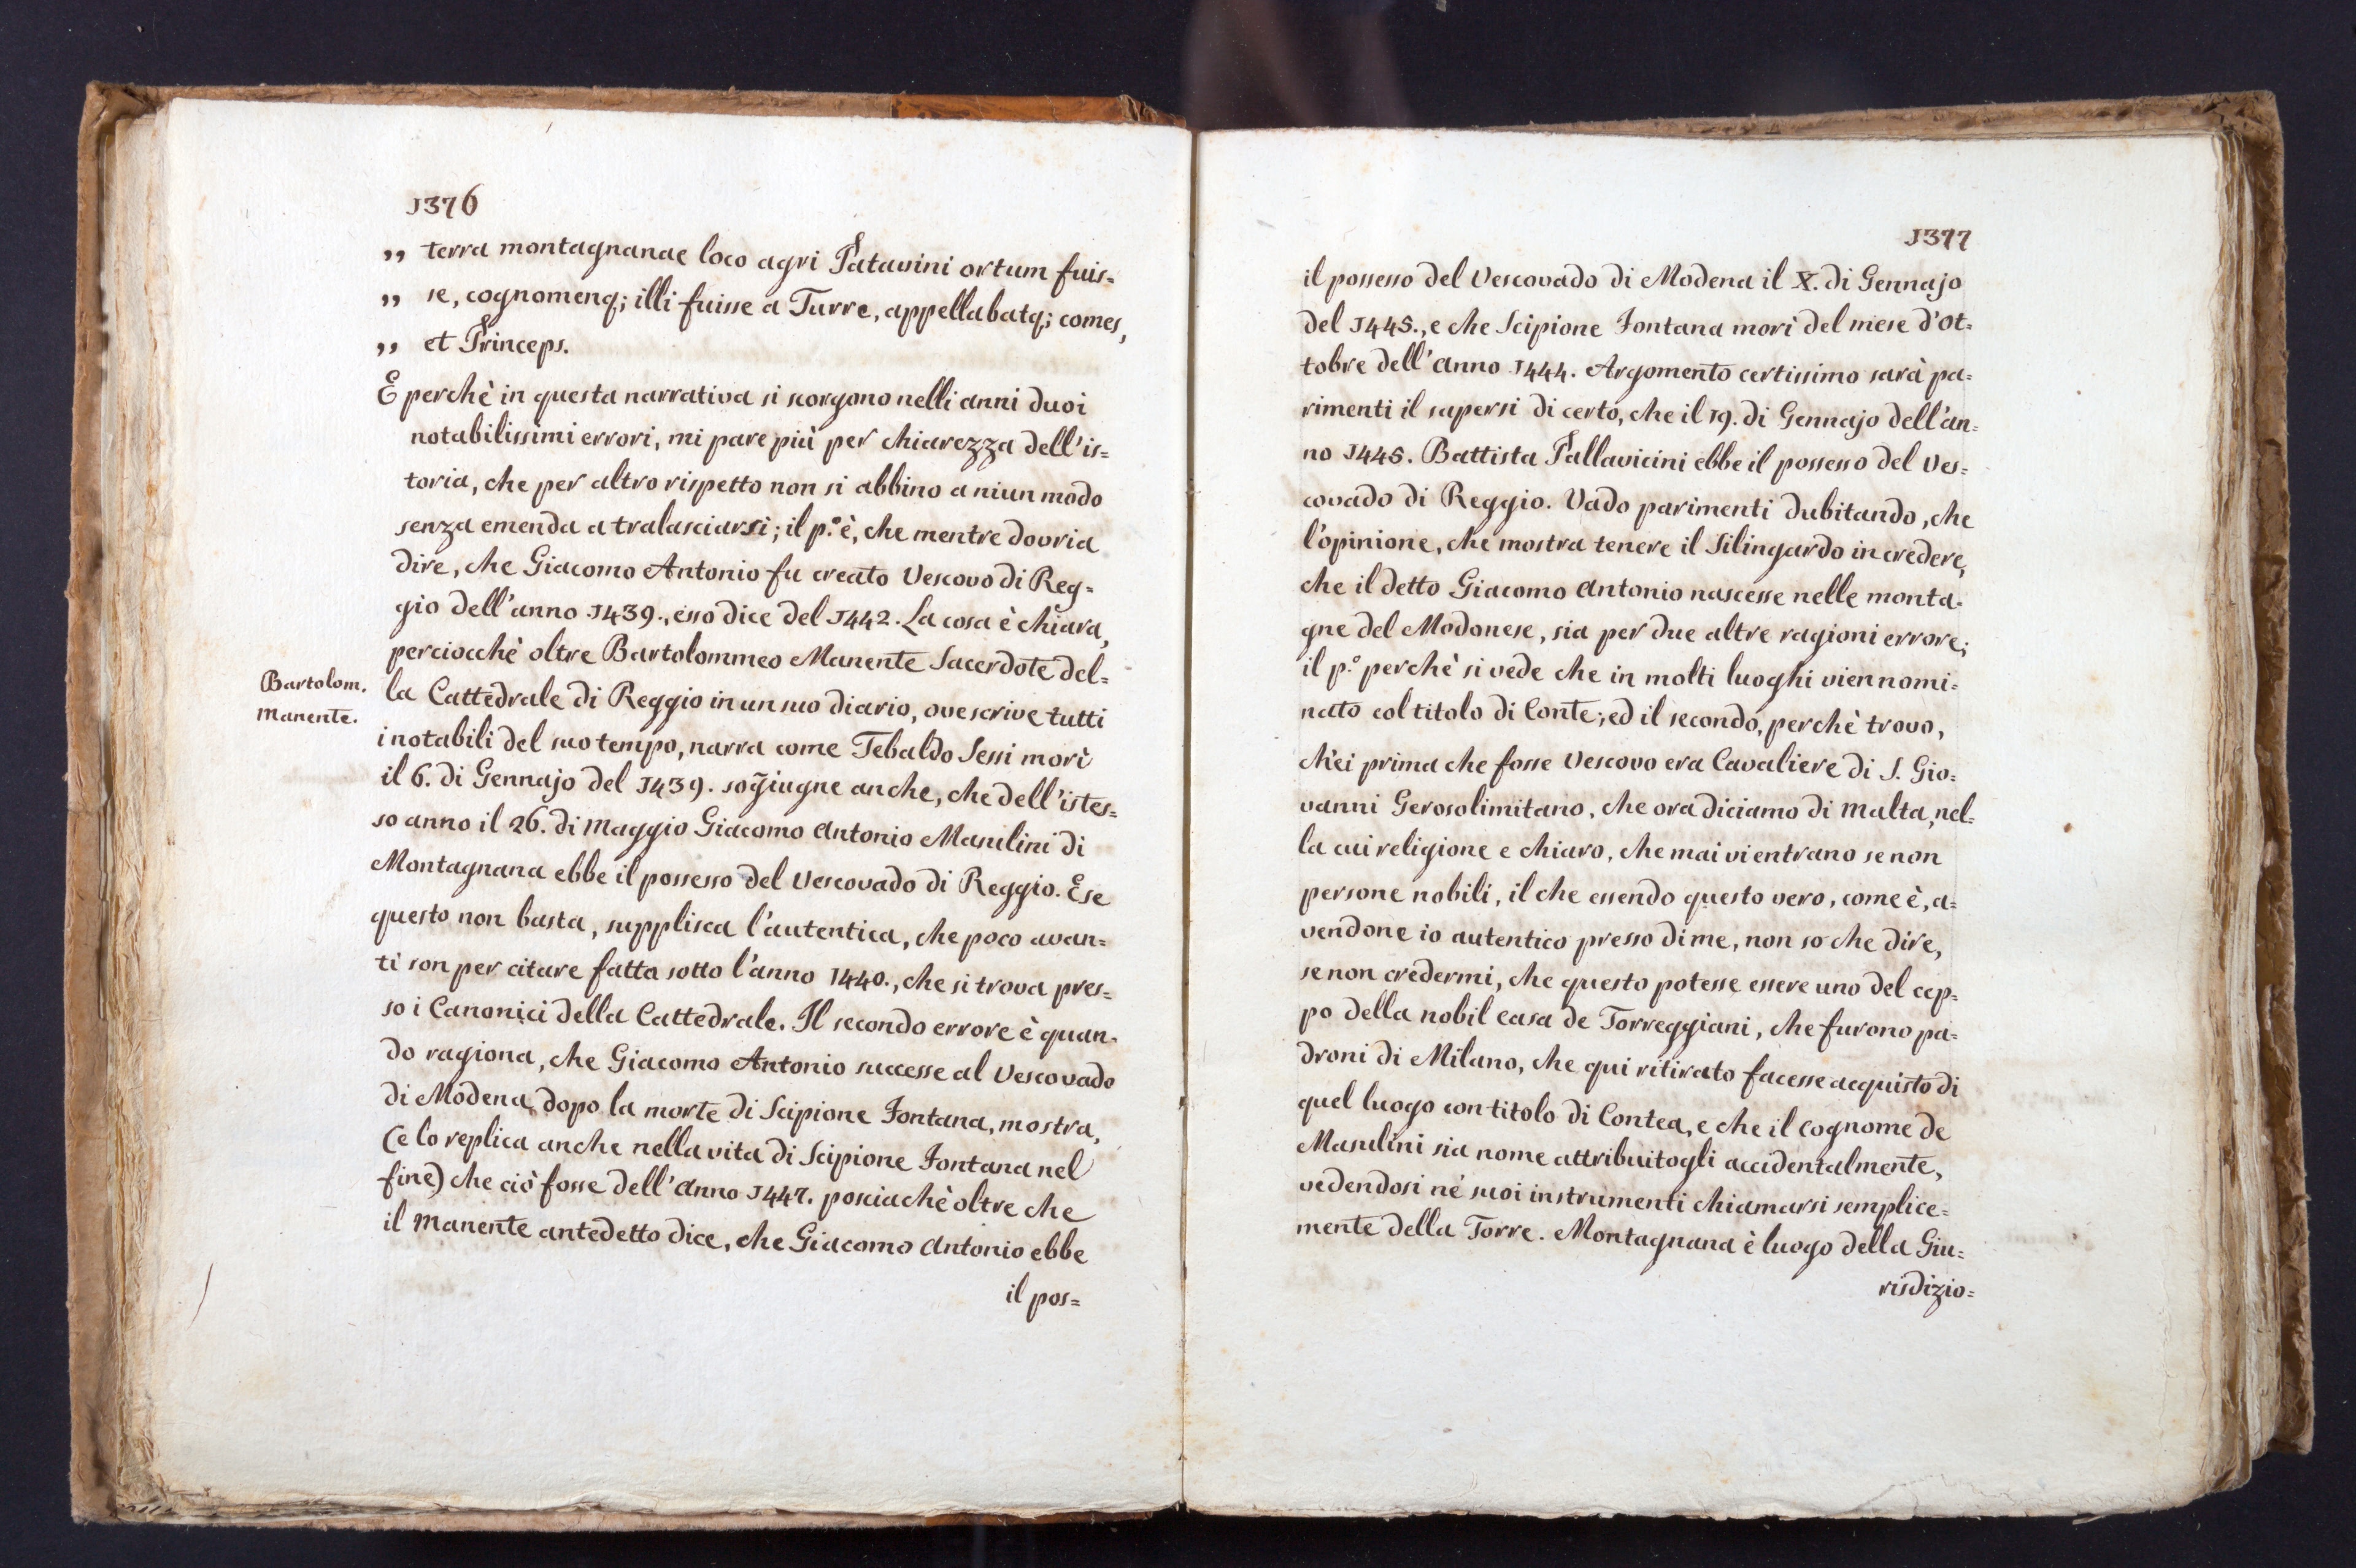 1376
„ terra montagnanae loco agri Patauini ortum fuis=
„ se, cognomenq; illi fuisse a Turre, appellabatq; comes,
„ et Princeps.
E perchè in questa narrativa si scorgono nelli anni duoi
notabilissimi errori, mi pare più per chiarezza dell'is=
toria, che per altro rispetto non si abbino a niun modo
senza emenda a tralasciarsi; il p.º è, che mentre dovria
dire, che Giacomo Antonio fu creato Vescovo di Reg=
gio dell'anno 1439., esso dice del 1442. La cosa è chiara,
perciocchè oltre Bartolommeo Manente Sacerdote del=
Bartolom.
Manente.
la Cattedrale di Reggio in un suo diario, ove scrive tutti
i notabili del suo tempo, narra come Tebaldo Sessi morì
il 6. di Gennajo del 1439. sog̃iugne anche, che dell'istes=
so anno il 26. di Maggio Giacomo Antonio Masulini di
Montagnana ebbe il possesso del Vescovado di Reggio. E se
questo non basta, supplisca l'autentica, che poco avan=
ti son per citare fatta sotto l'anno 1440., che si trova pres=
so i Canonici della Cattedrale. Il secondo errore è quan=
do ragiona, che Giacomo Antonio successe al Vescovado
di Modena dopo la morte di Scipione Fontana, mostra,
(e lo replica anche nella vita di Scipione Fontana nel
fine) che ciò fosse dell'Anno 1447. posciachè oltre che
il Manente antedetto dice, che Giacomo Antonio ebbe
il pos=
1377
il possesso del Vescovado di Modena il X. di Gennajo
del 1445., e che Scipione Fontana morì del mese d'Ot=
tobre dell'Anno 1444. Argomento certissimo sarà pa=
rimenti il sapersi di certo, che il 19. di Gennajo dell'an=
no 1445. Battista Pallavicini ebbe il possesso del Ves=
covado di Reggio. Vado parimenti dubitando, che
l'opinione, che mostra tenere il Silingardo in credere,
che il detto Giacomo Antonio nascesse nelle monta=
gne del Modonese, sia per due altre ragioni errore;
il p.º perchè si vede che in molti luoghi vien nomi=
nato col titolo di Conte; ed il secondo, perchè trovo,
ch'ei prima che fosse Vescovo era Cavaliere di S. Gio=
vanni Gerosolimitano, che ora diciamo di Malta, nel=
la cui religione e chiaro, che mai vi entrano se non
persone nobili, il che essendo questo vero, come è, a=
vendone io autentico presso di me, non so che dire,
se non credermi, che questo potesse essere uno del cep=
po della nobil casa de Torreggiani, che furono pa=
droni di Milano, che qui ritirato facesse acquisto di
quel luogo con titolo di Contea, e che il cognome de
Masulini sia nome attribuitogli accidentalmente,
vedendosi nè suoi instrumenti chiamarsi semplice=
mente della Torre. Montagnana è luogo della Giu=
risdizio=